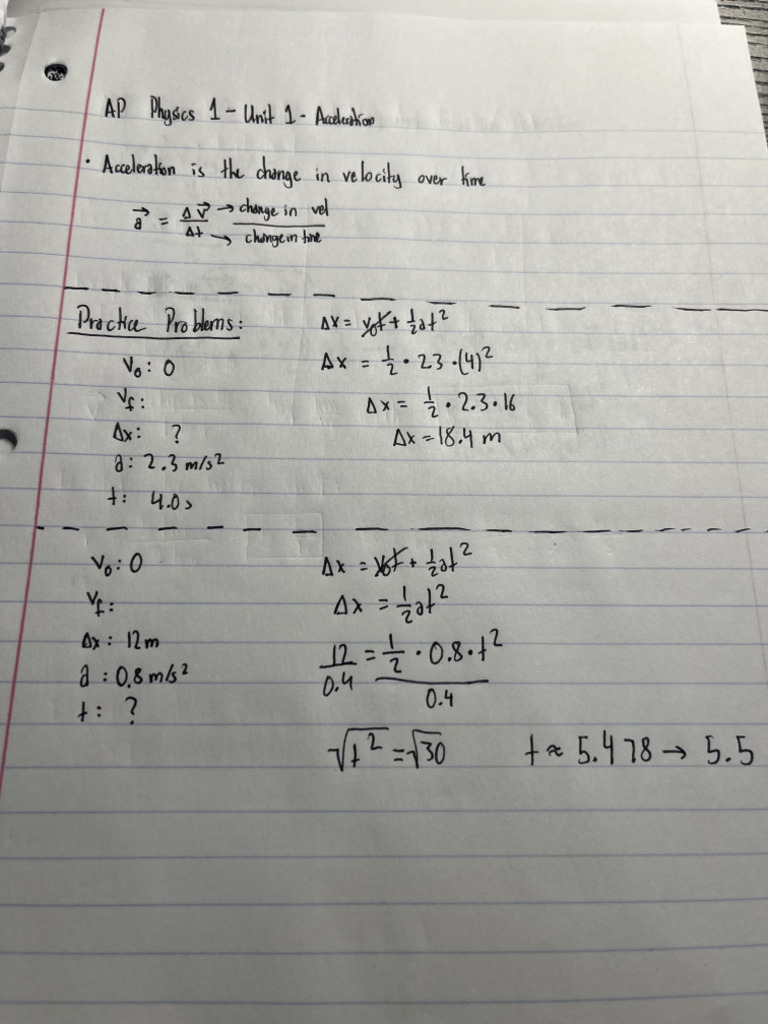 AP Physics 1 - Unit 1 - Acceleration
• Acceleration is the change in velocity over time
a⃗ = Δv⃗/Δt → change in vel / → change in time
Practice Problems:
V₀: 0
Vf:
Δx: ?
a: 2.3 m/s²
t: 4.0s
Δx = v₀t + ½at²
Δx = ½ · 23 · (4)²
Δx = ½ · 2.3 · 16
Δx = 18.4 m
V₀: 0
Vf:
Δx: 12m
a: 0.8 m/s²
t: ?
Δx = v₀t + ½at²
Δx = ½at²
12/0.4 = ½ · 0.8 · t²/0.4
√t² = √30
t ≈ 5.478 → 5.5